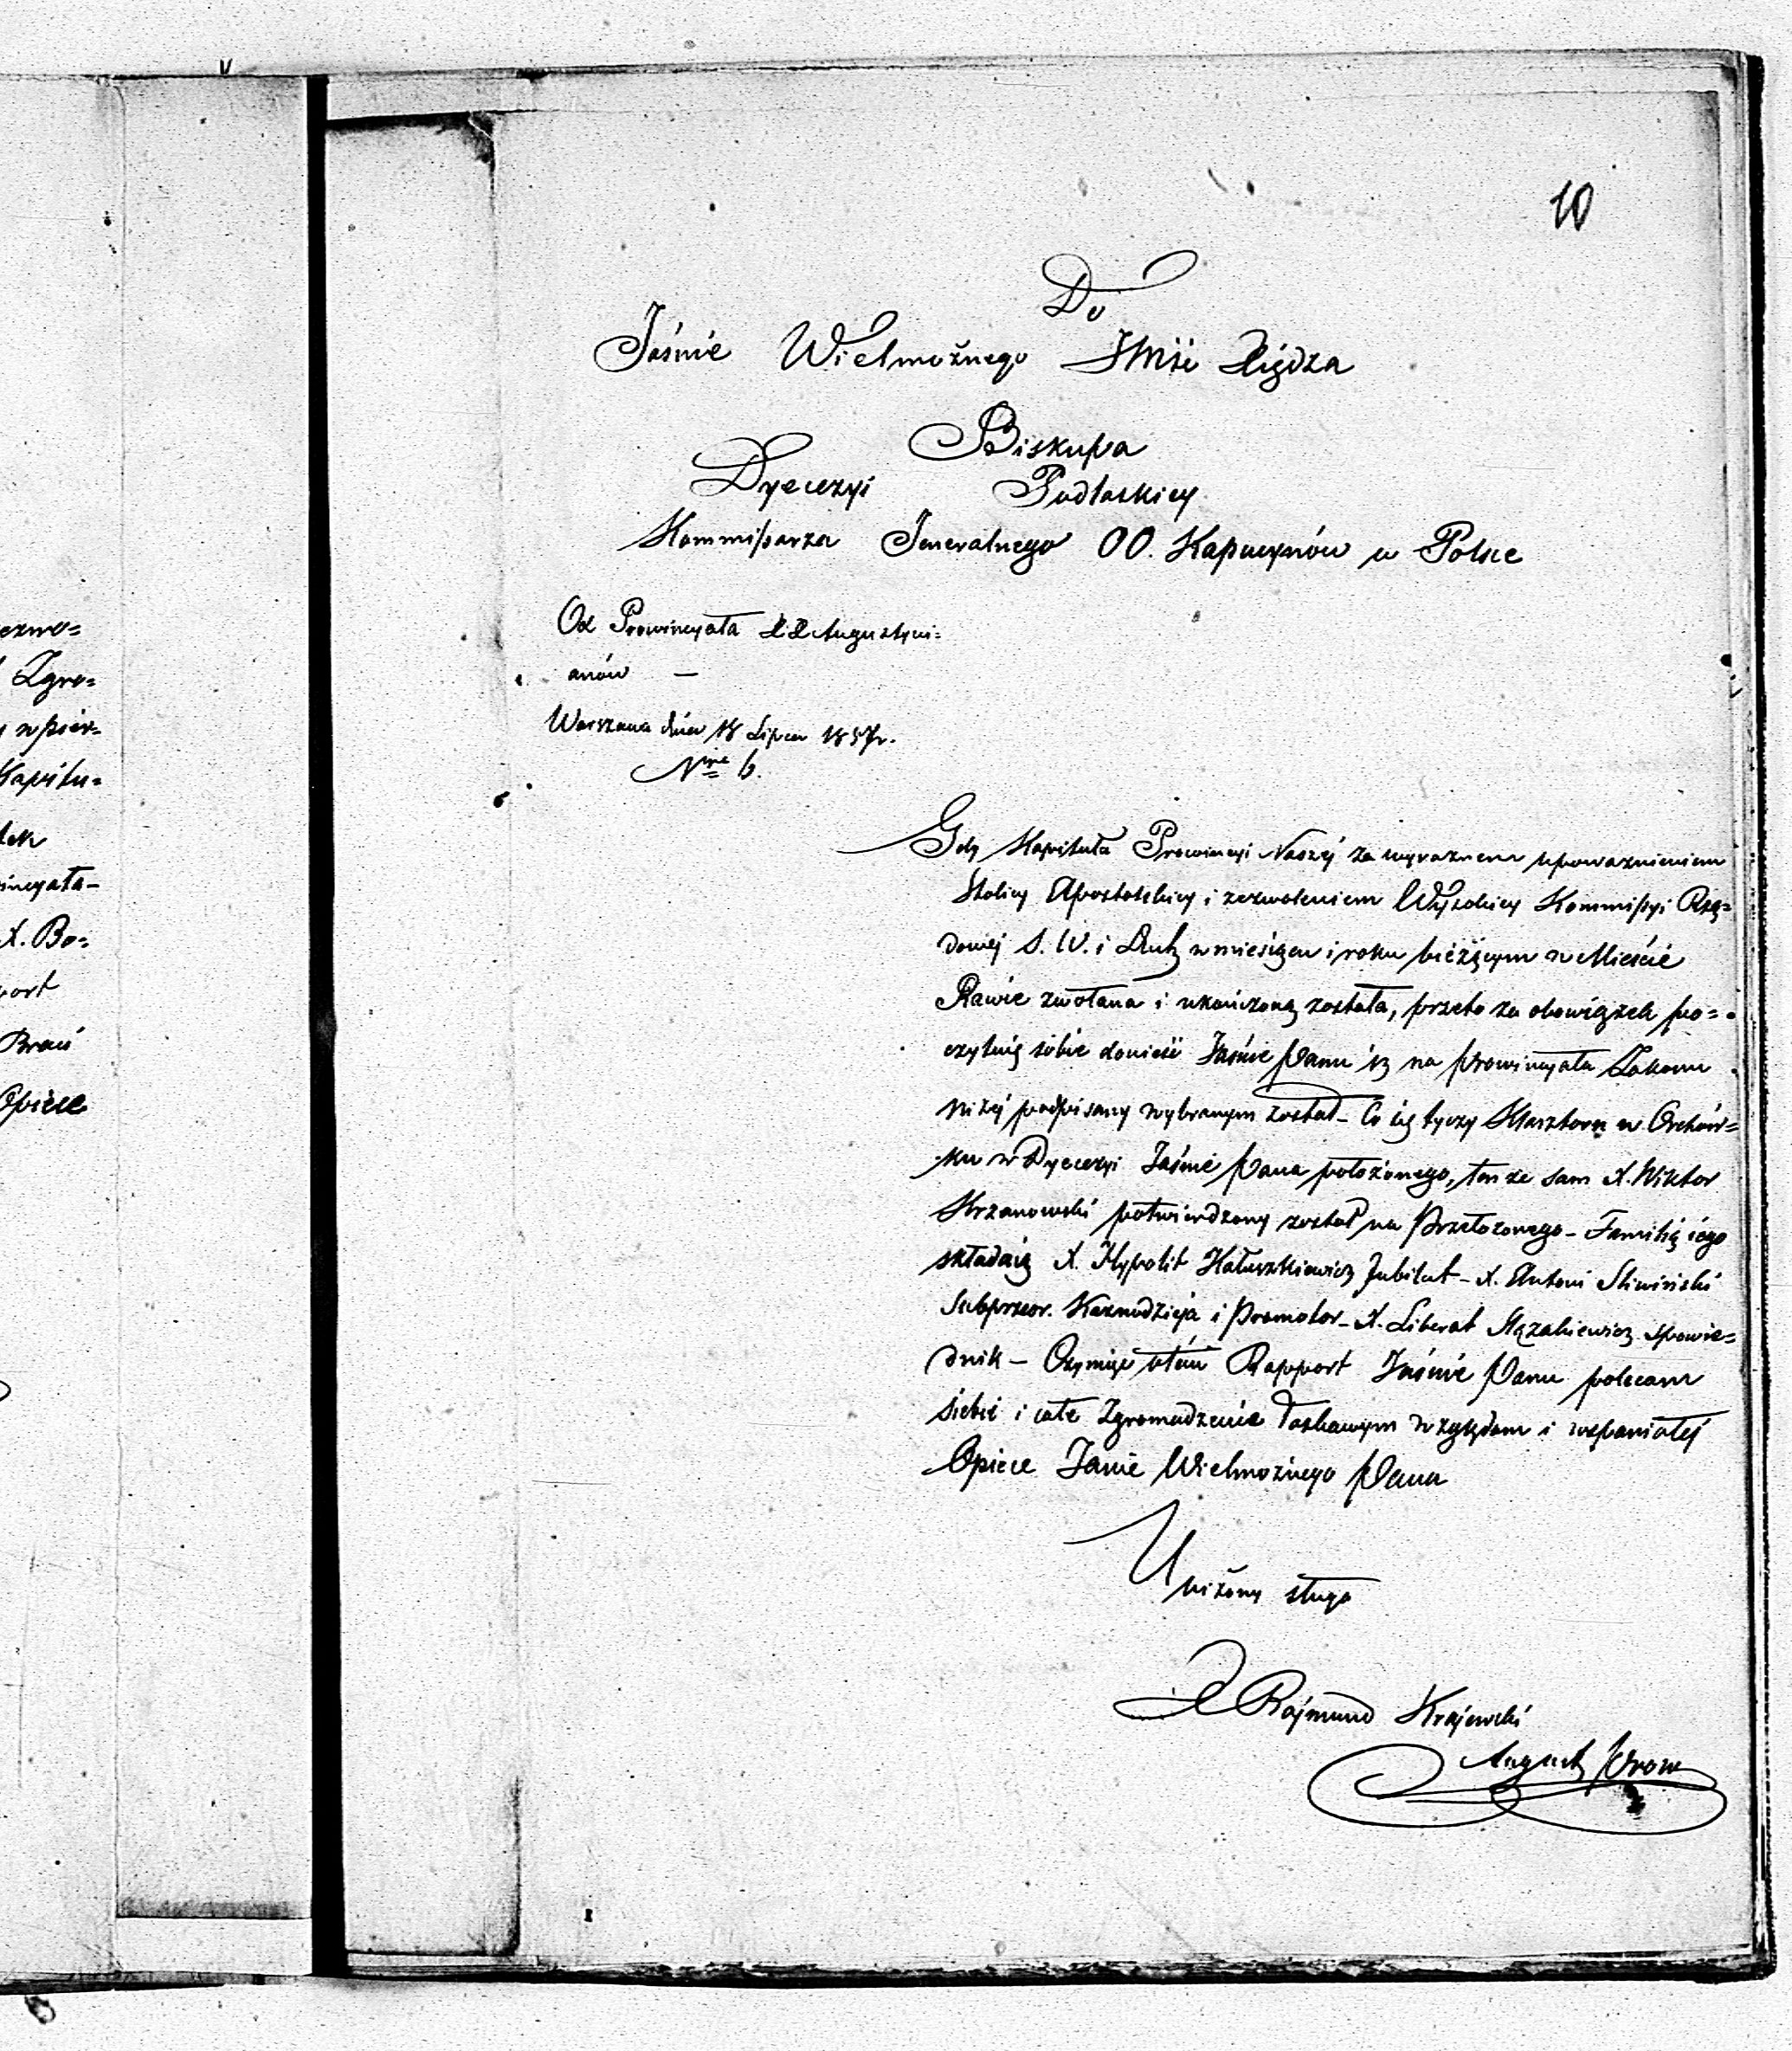 ezwo=
Zgro=
w pier=
Kapitu=
dek
wincyała-
X. Bo=
port
Braci
Opiece
10
Do
Jaśnie Wielmożnego JMći Xiędza
Biskupa
Dyecezyi Podlaskiey
Kommissarza Jeneralnego OO. Kapucynów w Polsce
Od Prowincyała XX Augustyni=
anów —
Warszawa dnia 18 Lipca 1837r.
N<sup>ro</sup> 6.
Gdy Kapituła Prowincyi Naszéj za wyraźnem upoważnieniem
Stolicy Apostolskiey i zezwoleniem Wysokiey Kommissyi Rzą=
dowéj S. W. i Duch w miesiącu i roku bieżącym w Mieście
Rawie zwołana i ukończoną została, przeto za obowiązek po=
czytuię sobie donieść Jaśnie Panu iż na Prowincyała Zakonu
niżéj podpisany wybranym został – Co się tyczy Klasztoru w Orchów=
ku w Dyecezyi Jaśnie Pana położonego, tenże sam X. Wiktor
Krzanowski potwierdzony został na Przełożonego – Familią iego
składaią X. Hypolit Hałuszkiewicz Jubilat – X. Antoni Sliwiński
Subprzeor. Kaznodzieja i Promotor – X. Liberat Mązakiewicz Spowie=
dnik – Czyniąc o tém Rapport Jaśnie Panu polecam
siebie i całe Zgromadzenie łaskawym względom i wspaniałéj
Opiece Jaśnie Wielmożnego Pana
Uniżony sługa
X Rajmund Krajewski
August Prow